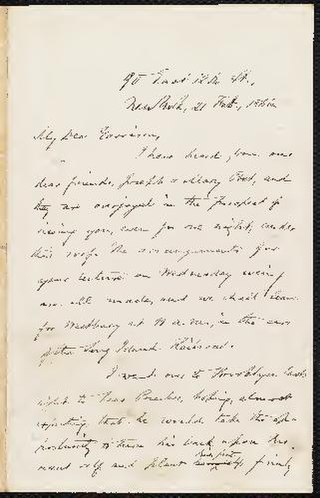 East 12th St.,
New York, 21 Feb.,
My Dear Garrison,
I have heard from our
dear friends, Joseph & Mary Post, and
they are overjoyed in the prospect of
seeing you, even for one night, under
their roof. The arrangements for
your lecture on Wednesday evening
are all made, and we shall leave
for Westbury at in the cars
of the Long Island Railroad.
I went over to Brooklyn last
night to hear Beecher, hoping, almost
expecting, that he would take the op-
portunity to turn his back upon his
and plant his feet firmly